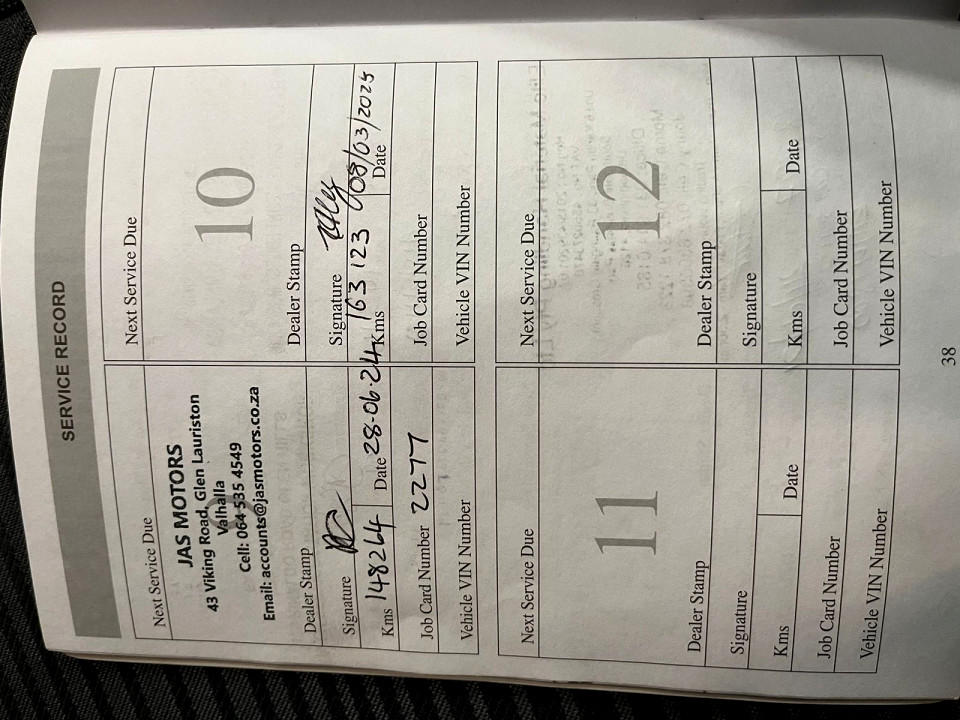 SERVICE RECORD
Next Service Due
9
JAS MOTORS
43 Viking Road, Glen Lauriston
Valhalla
Cell: 064 535 4549
Email: accounts@jasmotors.co.za
Dealer Stamp
Signature
Kms 148264 Date 28-06-24
Job Card Number 2277
Vehicle VIN Number
Next Service Due
10
Dealer Stamp
Signature
Kms 163 123 Date 08/03/2025
Job Card Number
Vehicle VIN Number
Next Service Due
11
Dealer Stamp
Signature
Kms Date
Job Card Number
Vehicle VIN Number
Next Service Due
12
Dealer Stamp
Signature
Kms Date
Job Card Number
Vehicle VIN Number
38